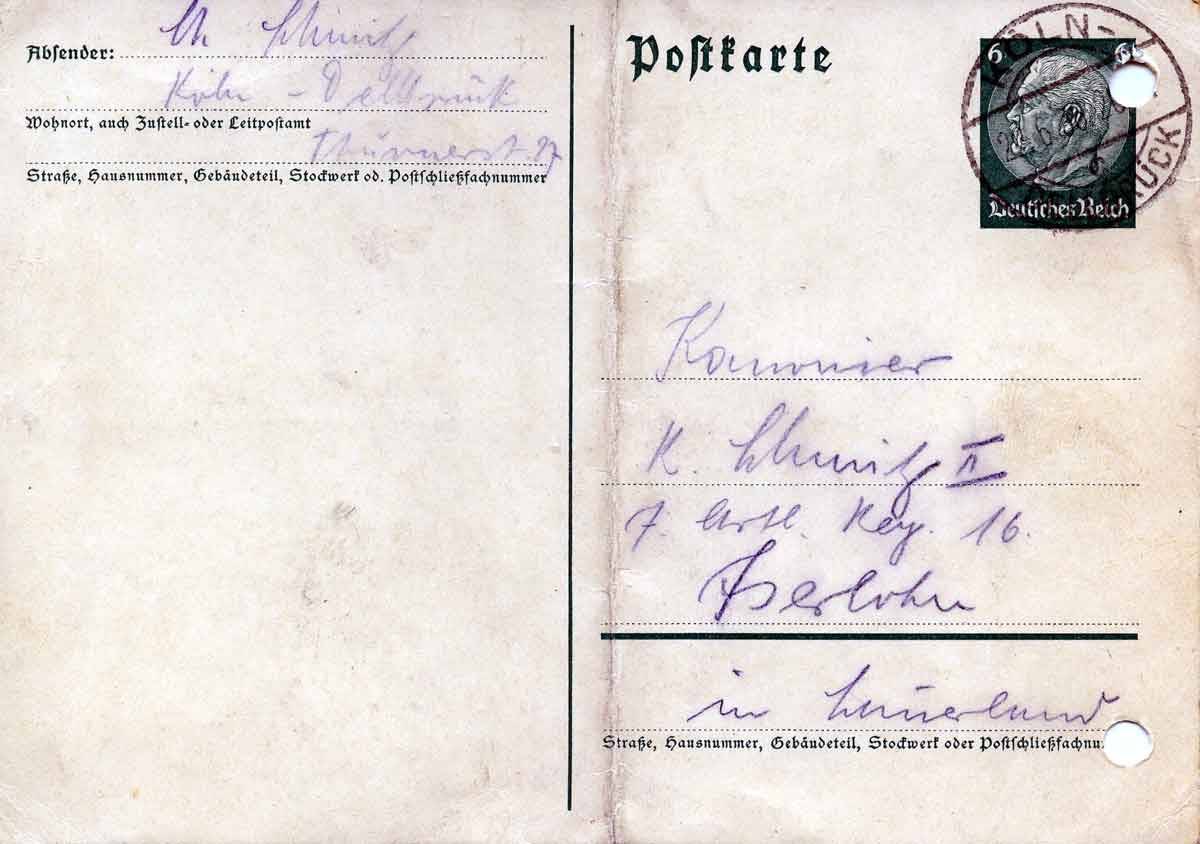 Absender: Ch Schmitz
Köln - Dellbrück
Wohnort, auch Zustell- oder Leitpostamt
Thurnerst. 17
Straße, Hausnummer, Gebäudeteil, Stockwerk od. Postschließfachnummer
Postkarte
KÖLN-
6 6
Deutsches Reich
Kanonier
K. Schmitz II
7. Artl. Reg. 16.
Iserlohn
in Sauerland
Straße, Hausnummer, Gebäudeteil, Stockwerk oder Postschließfachnu